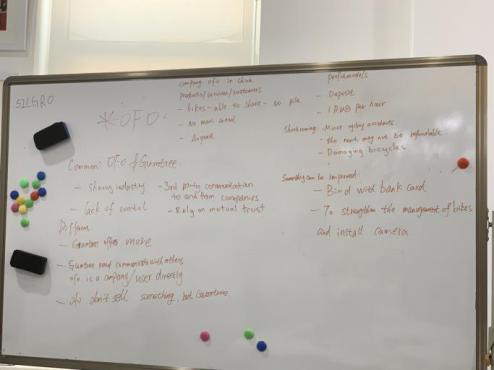 SILGRO
*-OFO-
company ofo in China
products/services/customers
- bikes - able to share - no pile
- no man control
- deposit
Common: OFO & Gumtree
- Sharing industry
- lack of control
- 3rd party communication
to end from companies
- Rely on mutual trust
Different
- Gumtree offers more
- Gumtree need communicate with others,
ofo is a company/user directly
- ofo don't sell something, but Gumtree
profit models
- Deposit
- 1 RMB per hour
Shortcoming: Minor cycling accidents
- The money may not be refundable
- Damaging bicycles
Something can be improved:
- Bind with bank card
- To strengthen the management of bikes
and install camera